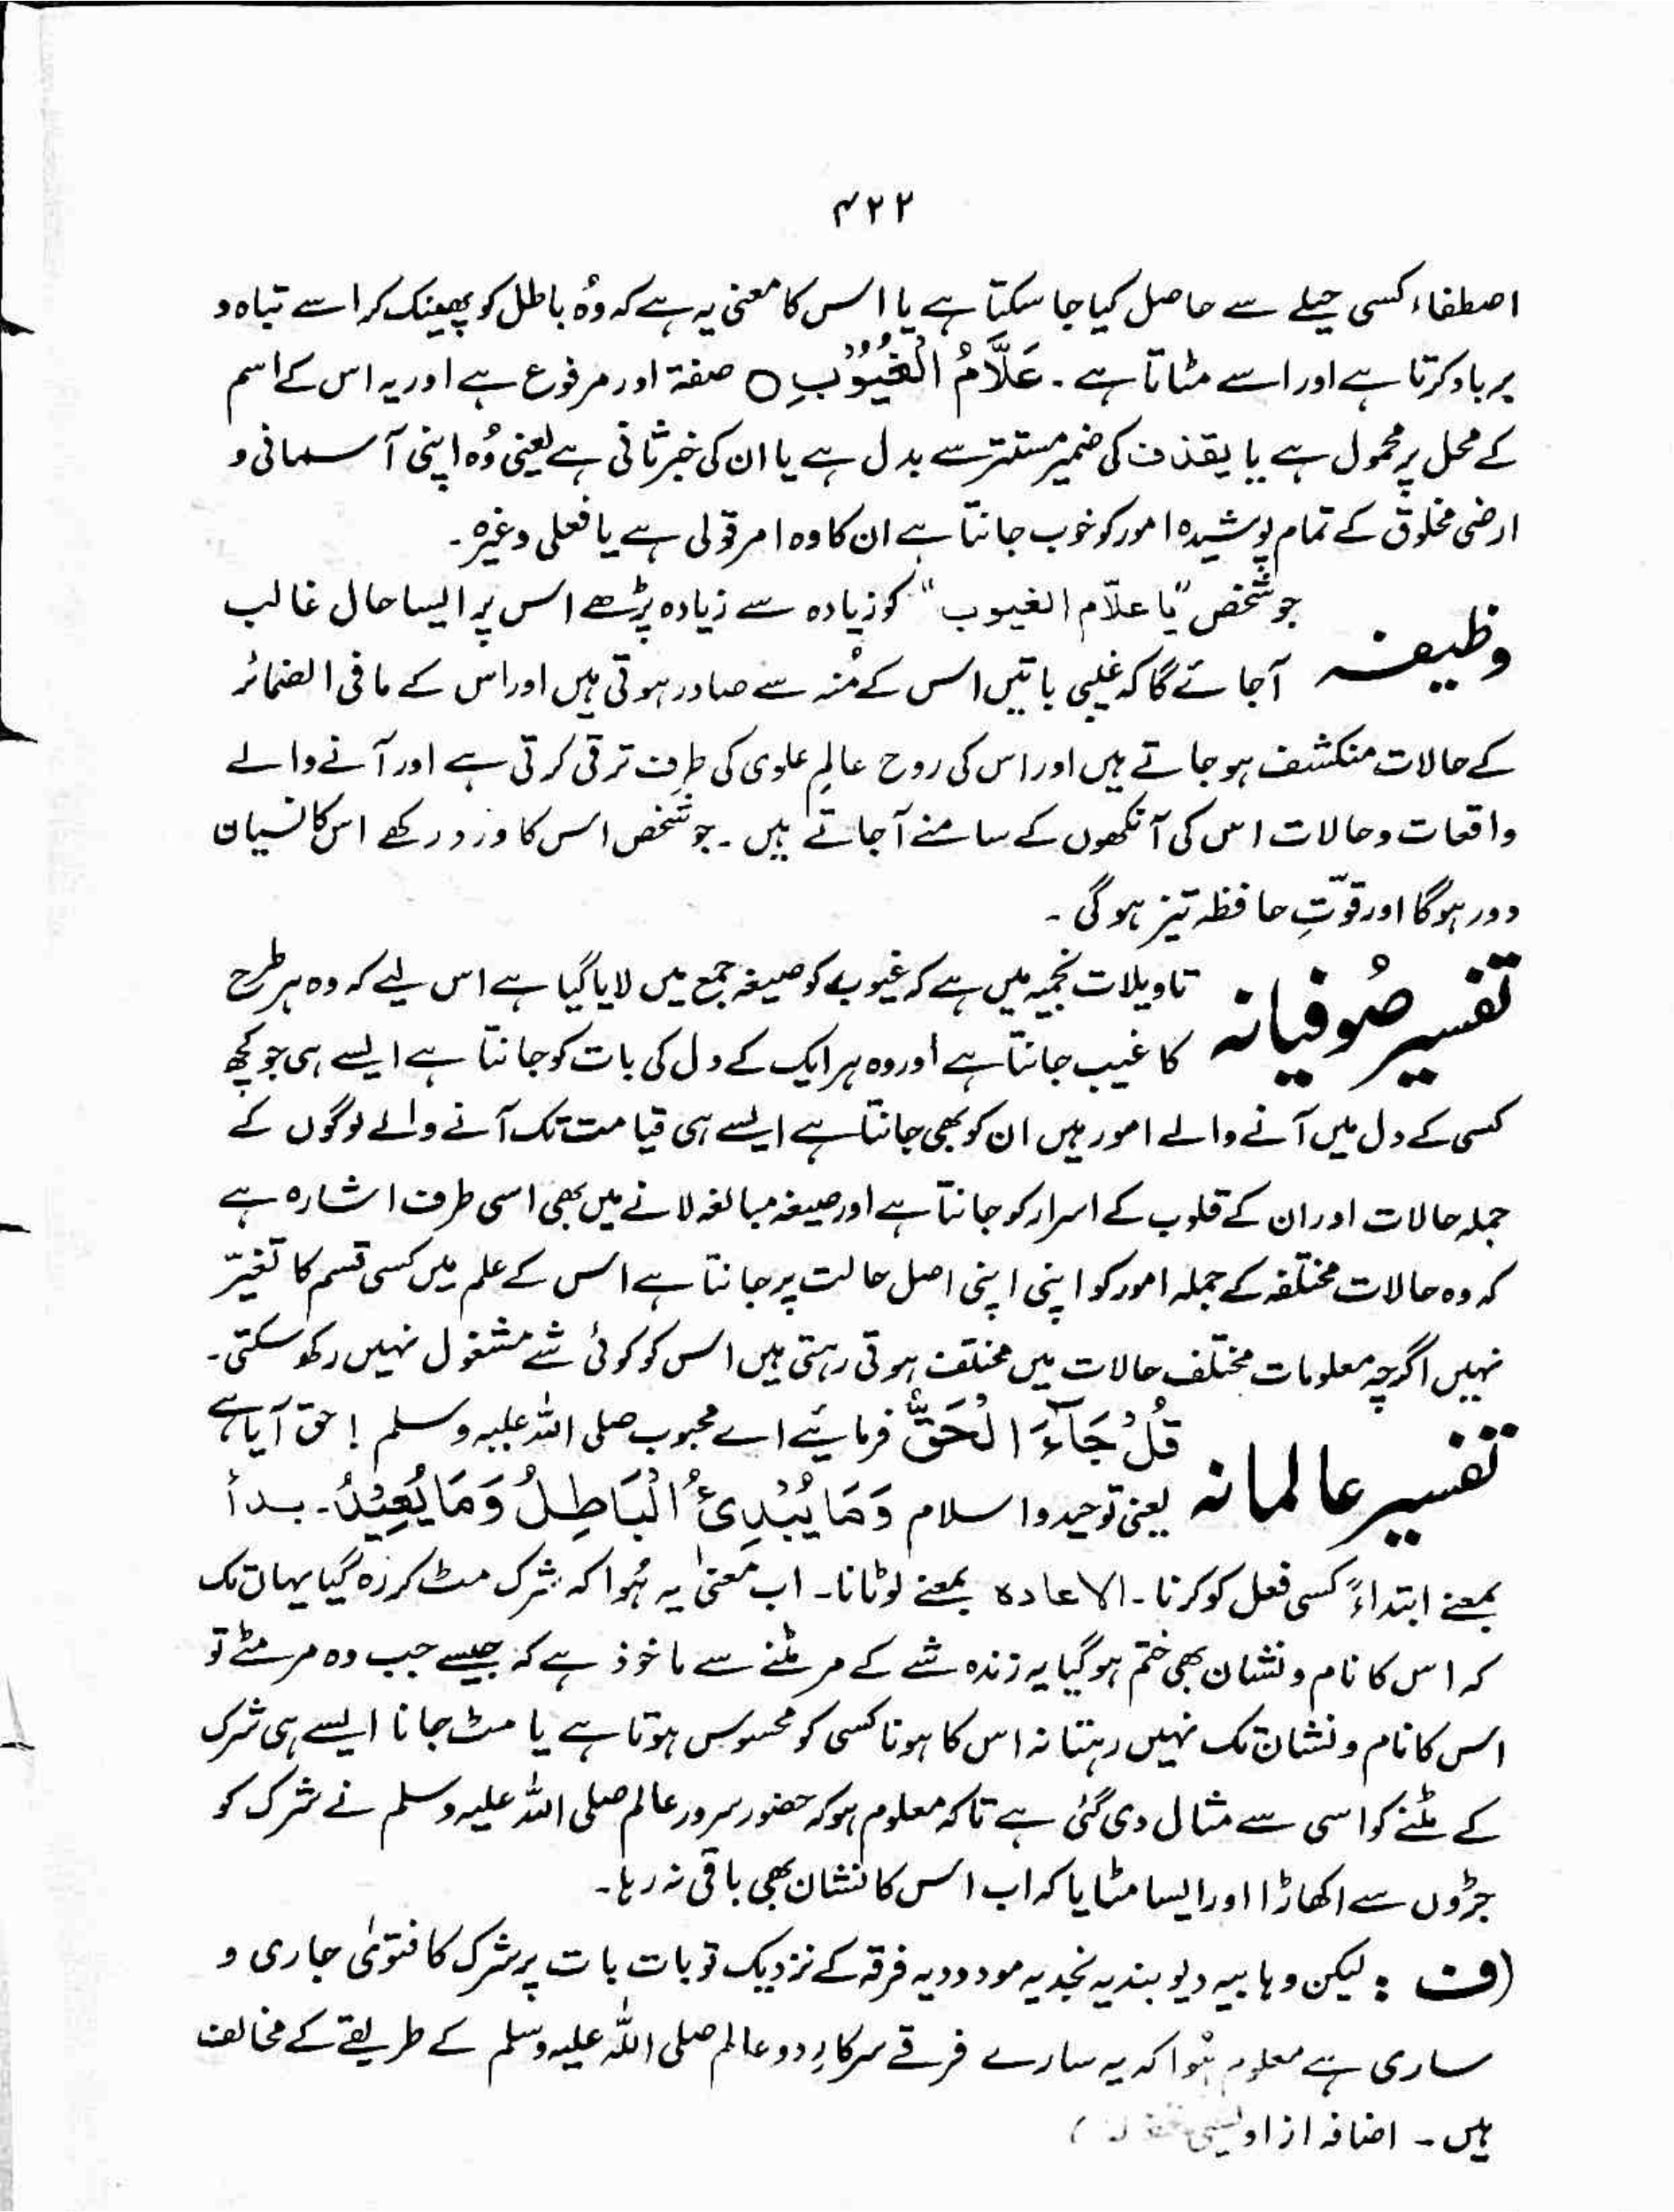 ۴۲۲
اصطفاء کسی حیلے سے حاصل کیا جا سکتا ہے یا اس کا معنی یہ ہے کہ وُہ باطل کو پھینک کر اسے تباہ و
برباد کرتا ہے اور اسے مٹاتا ہے ۔ عَلَّامُ الْغُيُوْبِ ○ صفۃ اور مرفوع ہے اور یہ اس کے اسم
کے محل پر محمول ہے یا یقذف کی ضمیر مستتر سے بدل ہے یا ان کی خبر ثانی ہے یعنی وُہ اپنی آسمانی و
ارضی مخلوق کے تمام پوشیدہ امور کو خوب جانتا ہے ان کا وہ امر قولی ہے یا فعلی وغیرہ ۔
وظیفہ جو شخص "یا علّام الغیوب" کو زیادہ سے زیادہ پڑھے اس پر ایسا حال غالب
آجائے گا کہ غلیبی باتیں اس کے مُنہ سے صادر ہوتی ہیں اور اس کے مافی الضمائر
کے حالات منکشف ہو جاتے ہیں اور اس کی روح عالمِ علوی کی طرف ترقی کرتی ہے اور آنے والے
واقعات و حالات اس کی آنکھوں کے سامنے آجاتے ہیں ۔ جو شخص اس کا ورد رکھے اس کا نسیان
دور ہوگا اور قوّتِ حافظہ تیز ہوگی ۔
تفسیر صُوفیانہ تاویلات نجمیہ میں ہے کہ غیوب کو صیغہ جمع میں لایا گیا ہے اس لیے کہ وہ ہر طرح
کا غیب جانتا ہے اور وہ ہر ایک کے دل کی بات کو جانتا ہے ایسے ہی جو کچھ
کسی کے دل میں آنے والے امور ہیں ان کو بھی جانتا ہے ایسے ہی قیامت تک آنے والے لوگوں کے
جملہ حالات اور ان کے قلوب کے اسرار کو جانتا ہے اور صیغہ مبالغہ لانے میں بھی اسی طرف اشارہ ہے
کہ وہ حالات مختلفہ کے جملہ امور کو اپنی اپنی اصل حالت پر جانتا ہے اس کے علم میں کسی قسم کا تغیّر
نہیں اگرچہ معلومات مختلف حالات میں مختلف ہوتی رہتی ہیں اس کو کوئی شے مشغول نہیں رکھ سکتی ۔
تفسیر عالمانہ قُلْ جَآءَ الْحَقُّ فرمائیے اے محبوب صلی اللہ علیہ وسلم ! حق آیا ہے
یعنی توحید و اسلام وَمَا يُبْدِئُ الْبَاطِلُ وَمَا يُعِيْدُ ۔ بدأ
بمعنے ابتداءً کسی فعل کو کرنا ۔ الاعادہ بمعنے لوٹانا ۔ اب معنیٰ یہ ہُوا کہ شرک مٹ کر رہ گیا یہاں تک
کہ اس کا نام و نشان بھی ختم ہوگیا یہ زندہ شے کے مر مٹنے سے ماخوذ ہے کہ جیسے جب وہ مر مٹے تو
اس کا نام و نشان تک نہیں رہتا نہ اس کا ہونا کسی کو محسوس ہوتا ہے یا مٹ جانا ایسے ہی شرک
کے مٹنے کو اسی سے مثال دی گئی ہے تاکہ معلوم ہو کہ حضور سرور عالم صلی اللہ علیہ وسلم نے شرک کو
جڑوں سے اکھاڑا اور ایسا مٹایا کہ اب اس کا نشان بھی باقی نہ رہا ۔
(ف : لیکن وہابیہ دیوبندیہ نجدیہ مودودیہ فرقہ کے نزدیک تو بات بات پر شرک کا فتویٰ جاری و
ساری ہے معلوم ہُوا کہ یہ سارے فرقے سرکارِ دو عالم صلی اللہ علیہ وسلم کے طریقے کے مخالف
ہیں ۔ اضافہ از اویسی )